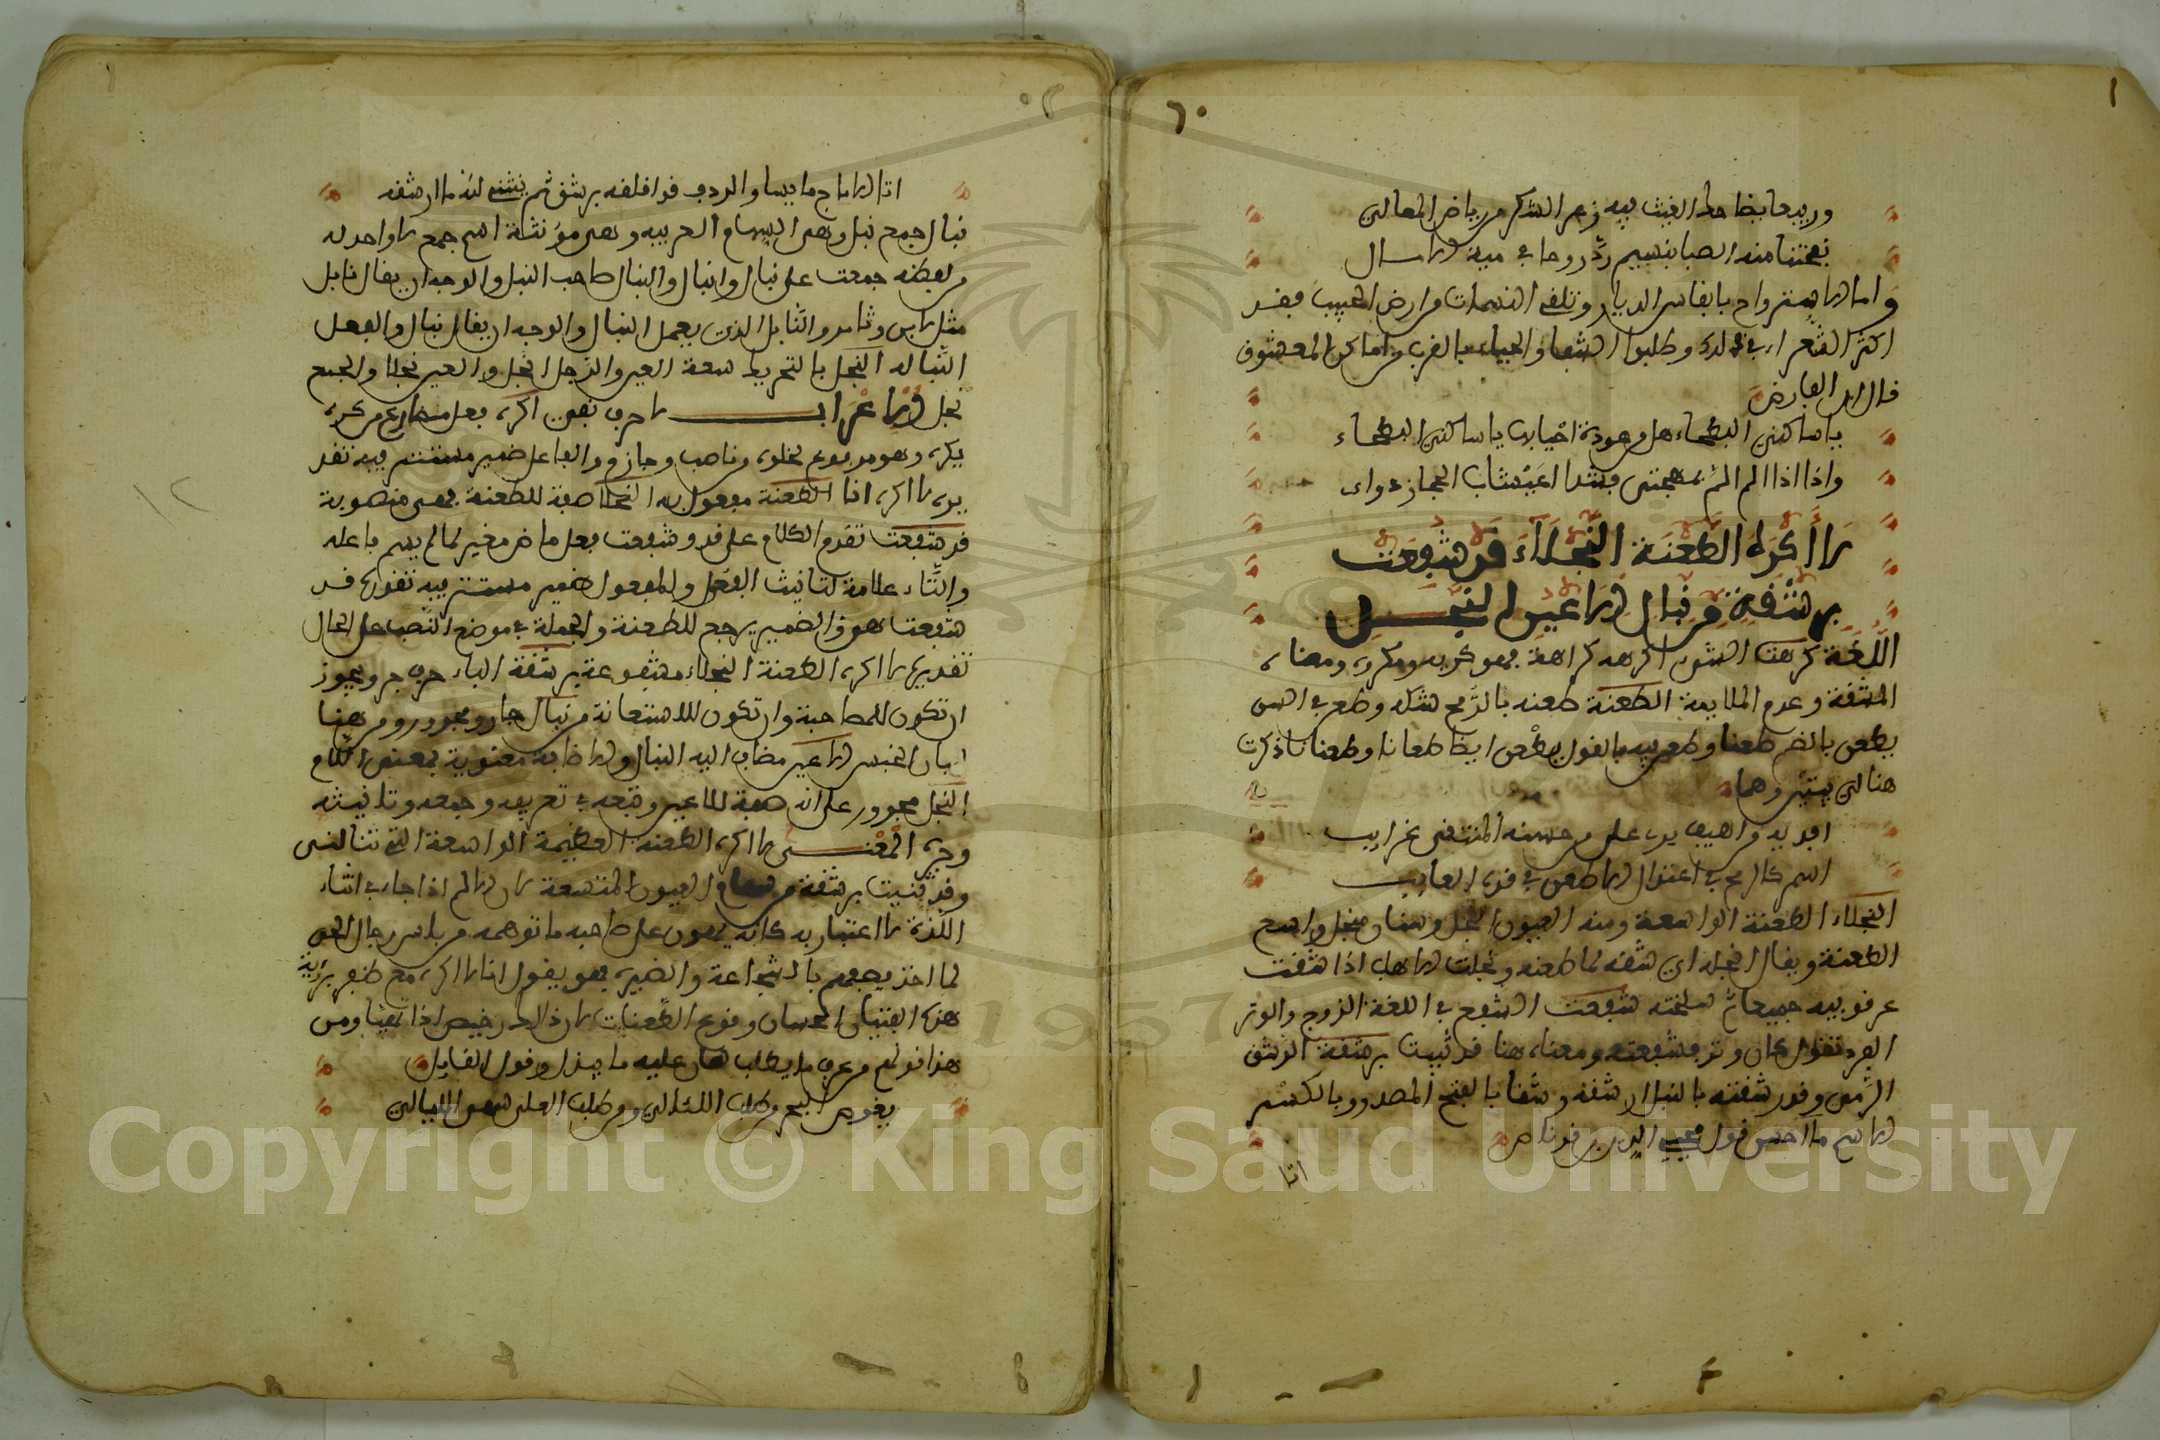 وربيعا بضاحك الغيث فيه زهر الشكر من رياض المعالي
نفحتنا منه الصبا بنسيم رد روحا في ميت الامال
واما الاسترواح بانفاس الديار وتلقي النسمات من ارض الحبيب فقد
اكثر الشعراء في ذلك وطلبوا الشفا والحياء بالقرب من اماكن المعشوق
قال ابن الفارض
يا ساكني البطحاء هل من عودة احيا بها يا ساكني البطحاء
واذا اذا الم الم بمهجتي فشذا اعيشاب الحجاز دواء
لا أكره الطعنة النجلاء قد شفعت
برشقة من نبال الاعين النجل
اللغة كرهت الشيء اكرهه كراهة فهو كريه ومكروه ومعناه
المشقة وعدم الملايمة الطعنة طعنه بالرمح شكه وطعن في السن
يطعن بالضم طعنا وطعن فيه بالقول يطعن ايضا طعانا وطعنانا ذكرت
هنا لي بيتين وهما
افديه من اهيف على من حسنه المنتقى غرايب
اسمر كالرمح في اعتدال لا طعن في قده العايب
النجلاء الطعنة الواسعة ومنه العيون النجل وسنان منجل واسع
الطعنة ويقال انجله اي شقه لما طعنه ونجلت الاهاب اذا شققت
عرقوبيه جميعا ثم سلخته شفعت الشفع في اللغة الزوج والوتر
الفرد تقول كان وترا فشفعته ومعناه هنا قد ثنيت برشقة الرشق
الرمي وقد رشقته بالنبل ارشقه رشقا بالفتح المصدر وبالكسر
الاسم ما احسن قول محيي الدين بن قرناص
انا
نبال جمع نبل وهي السهام العربية وهي مؤنثة اسم جمع لا واحد له
من لفظه جمعت على نبال وانبال والنبال صاحب النبل والوجه ان يقال نابل
مثل لابن وتامر والنابل الذي يعمل النبال والوجه ان يقال نبال والفعل
النبالة النجل بالتحريك سعة العين والرجل انجل والعين نجلا والجمع
نجل الاعراب لا حرف نفي اكره فعل مضارع من كره
يكره وهو مرفوع لخلوه من ناصب وجازم والفاعل ضمير مستتر فيه تقد
يره لا اكره انا الطعنة مفعول به النجلا صفة للطعنة فهي منصوبة
قد شفعت تقدم الكلام على قد وشفعت فعل ماض مغير لما لم يسم فاعله
والتاء علامة لتانيث الفعل والمفعول ضمير مستتر فيه تقديره قد
شفعت هي والضمير يرجع للطعنة والجملة في موضع النصب على الحال
تقديره لا اكره الطعنة النجلاء مشفوعة برشقة الباء حرف جر ويجوز
ان تكون للمصاحبة وان تكون للاستعانة من نبال جار ومجرور ومن هنا
لبيان الجنس الاعين مضاف اليه النبال والاضافة معنوية بمعنى اللام
النجل مجرور على انه صفة للاعين وتبعه في تعريفه وجمعه وتانيثه
وجره المعنى لا اكره الطعنة العظيمة الواسعة التي تنالني
وقد ثنيت برشقة من سهام العيون المتسعة لان الالم اذا جاء في اثناء
اللذة لا اعتبار به كانه يهون على صاحبه ما توهمه من باس رجال الحي
لما اخذ يصفهم بالشجاعة والغيرة فهو يقول انا لا اكره مع ظفر برؤية
هذه الفتيات الحسان وقوع الطعنات لان ذلك رخيص اذا تهيا ومن
هذا قولهم من عرف ما يطلب هان عليه ما يبذل وقول القايل
يغوص البحر من طلب اللئالي ومن طلب العلى سهر الليالي